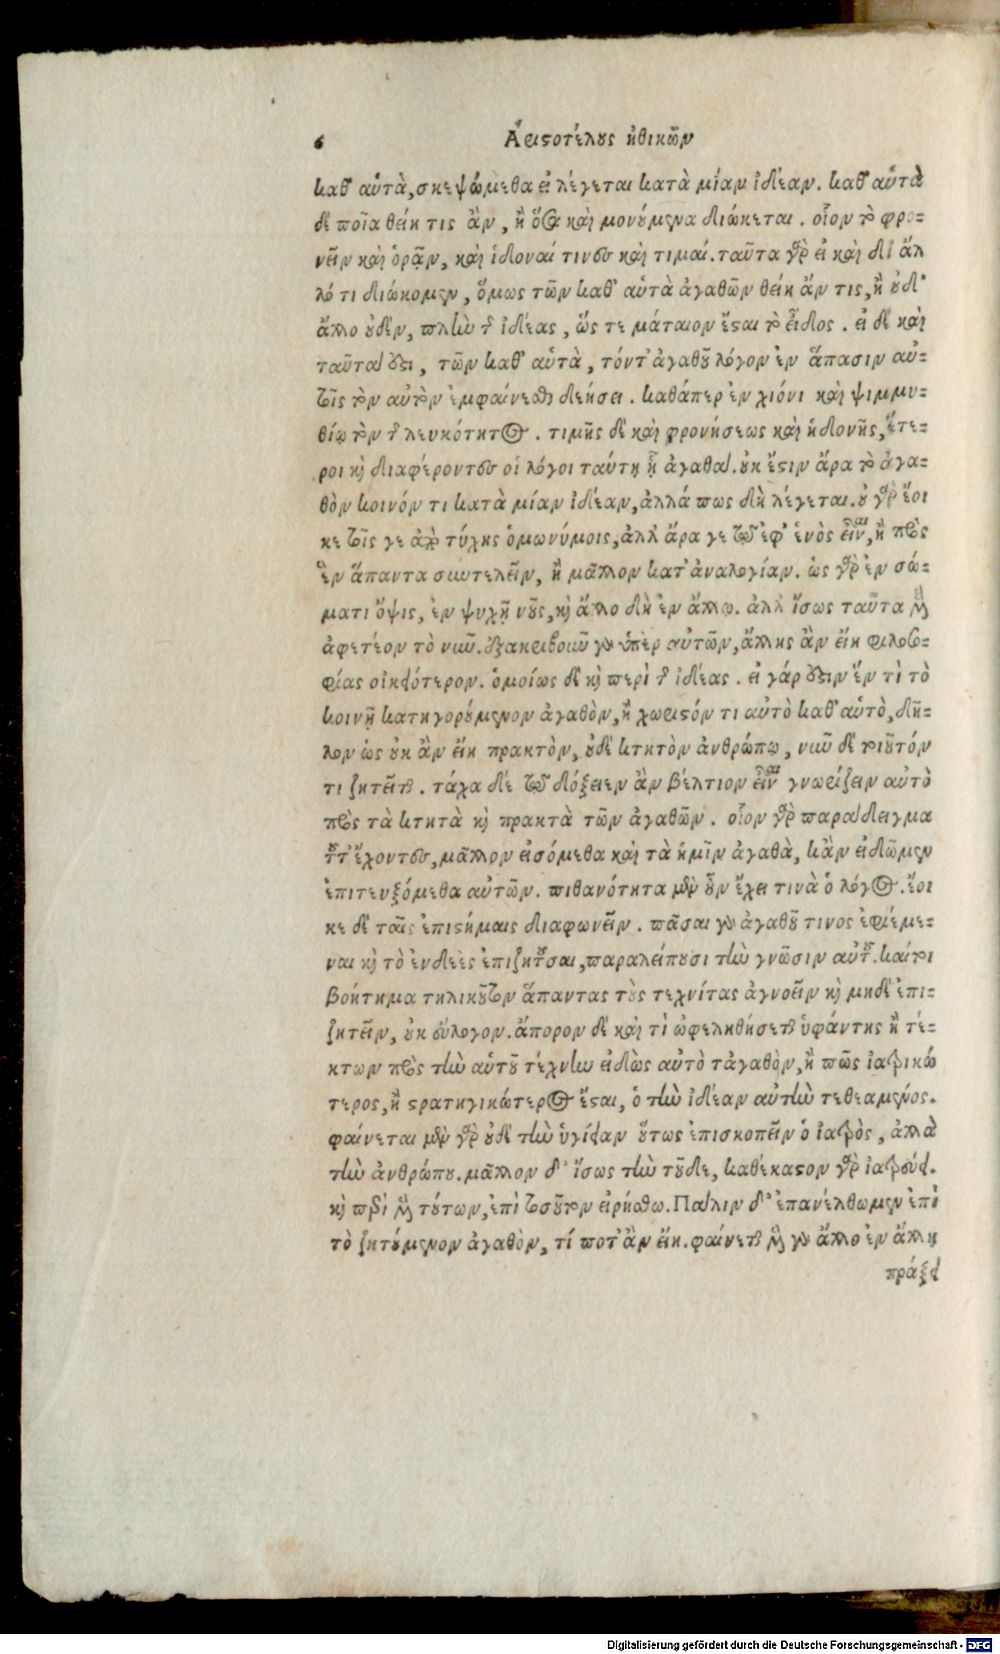 6 Ἀριστοτέλους ἠθικῶν
καθ' αὑτὰ, σκεψώμεθα εἰ λέγεται κατὰ μίαν ἰδέαν. καθ' αὑτὰ
δὲ ποῖα θείη τις ἂν, ἢ ὅσα καὶ μονούμενα διώκεται. οἷον τὸ φρο-
νεῖν καὶ ὁρᾷν, καὶ ἡδοναί τινες καὶ τιμαί. ταῦτα γὰρ εἰ καὶ δι' ἄλ
λό τι διώκομεν, ὅμως τῶν καθ' αὑτὰ ἀγαθῶν θείη ἄν τις, ἢ οὐδ'
ἄλλο οὐδὲν, πλὴν τῆς ἰδέας, ὥς τε μάταιον ἔσται τὸ εἶδος. εἰ δὲ καὶ
ταῦτά ἐστι, τῶν καθ' αὑτὰ, τόντ' ἀγαθοῦ λόγον ἐν ἅπασιν αὐ-
τοῖς τὸν αὐτὸν ἐμφαίνεσθαι δεήσει. καθάπερ ἐν χιόνι καὶ ψιμμυ-
θίῳ τὸν τῆς λευκότητος. τιμῆς δὲ καὶ φρονήσεως καὶ ἡδονῆς, ἕτε-
ροι καὶ διαφέροντες οἱ λόγοι ταύτῃ ᾗ ἀγαθά. οὐκ ἔστιν ἄρα τὸ ἀγα-
θὸν κοινόν τι κατὰ μίαν ἰδέαν, ἀλλά πως δὴ λέγεται. οὐ γὰρ ἔοι
κε τοῖς γε ἀπὸ τύχης ὁμωνύμοις, ἀλλ' ἄρα γε τῷ ἐφ' ἑνὸς εἶναι, ἢ πρὸς
ἓν ἅπαντα συντελεῖν, ἢ μᾶλλον κατ' ἀναλογίαν. ὡς γὰρ ἐν σώ-
ματι ὄψις, ἐν ψυχῇ νοῦς, καὶ ἄλλο δὴ ἐν ἄλλῳ. ἀλλ' ἴσως ταῦτα μὲν
ἀφετέον τὸ νῦν. ἐξακριβοῦν γὰρ ὑπὲρ αὐτῶν, ἄλλης ἂν εἴη φιλοσο-
φίας οἰκειότερον. ὁμοίως δὲ καὶ περὶ τῆς ἰδέας. εἰ γάρ ἐστιν ἕν τὶ τὸ
κοινῇ κατηγορούμενον ἀγαθὸν, ἢ χωριστόν τι αὐτὸ καθ' αὑτὸ, δῆ-
λον ὡς οὐκ ἂν εἴη πρακτὸν, οὐδὲ κτητὸν ἀνθρώπῳ, νῦν δὲ τοιοῦτόν
τι ζητεῖται. τάχα δέ τῳ δόξειεν ἂν βέλτιον εἶναι γνωρίζειν αὐτὸ
πρὸς τὰ κτητὰ καὶ πρακτὰ τῶν ἀγαθῶν. οἷον γὰρ παράδειγμα
τοῦτ' ἔχοντες, μᾶλλον εἰσόμεθα καὶ τὰ ἡμῖν ἀγαθὰ, κἂν εἰδῶμεν
ἐπιτευξόμεθα αὐτῶν. πιθανότητα μὲν οὖν ἔχει τινὰ ὁ λόγος. ἔοι
κε δὲ ταῖς ἐπιστήμαις διαφωνεῖν. πᾶσαι γὰρ ἀγαθοῦ τινος ἐφιέμε-
ναι καὶ τὸ ἐνδεὲς ἐπιζητοῦσαι, παραλείπουσι τὴν γνῶσιν αὐτοῦ. καίτοι
βοήτημα τηλικοῦτον ἅπαντας τοὺς τεχνίτας ἀγνοεῖν καὶ μηδὲ ἐπι-
ζητεῖν, οὐκ εὔλογον. ἄπορον δὲ καὶ τὶ ὠφεληθήσεται ὑφάντης ἢ τέ-
κτων πρὸς τὴν αὑτοῦ τέχνην εἰδὼς αὐτὸ τἀγαθὸν, ἢ πῶς ἰατρικώ
τερος, ἢ στρατηγικώτερος ἔσται, ὁ τὴν ἰδέαν αὐτὴν τεθεαμένος.
φαίνεται μὲν γὰρ οὐδὲ τὴν ὑγίειαν οὕτως ἐπισκοπεῖν ὁ ἰατρὸς, ἀλλὰ
τὴν ἀνθρώπου. μᾶλλον δ' ἴσως τὴν τοῦδε, καθέκαστον γὰρ ἰατρεύει.
καὶ περὶ μὲν τούτων, ἐπὶ τοσοῦτον εἰρήσθω. Πάλιν δ' ἐπανέλθωμεν ἐπὶ
τὸ ζητούμενον ἀγαθὸν, τί ποτ' ἂν εἴη. φαίνεται μὲν γὰρ ἄλλο ἐν ἄλλῃ
πράξει
Digitalisierung gefördert durch die Deutsche Forschungsgemeinschaft - DFG